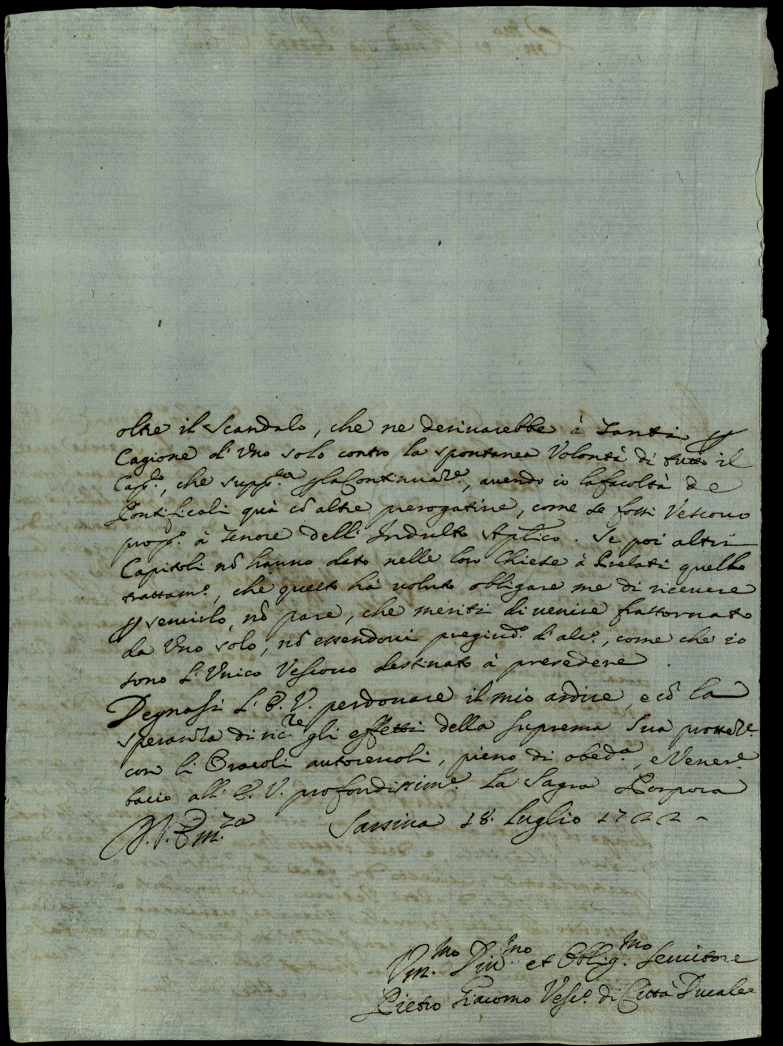 oltre il scandalo, che ne deriuarebbe à Tanti p
Cagione d'Vno solo contro la spontanea Volontà di tutto il
Cap.º, che supp.ca p la Continuaz.e, auendo io la facoltà de
Pontificali quà cō altre prerogatiue, come se fossi Vescouo
prop.º à tenore dell'Indulto Aplico. Se poi altri
Capitoli nō hanno dato nelle loro Chiese à Prelati quello
trattam.º, che questo hà voluto obligare me di riceuere
p seruirlo, nō pare, che meriti di venire frastornato
da Vno solo, nō essendoui pregiud.º d'alc.º, come che io
sono l'Vnico Vescouo destinato à presedere.
Degnassi l'E. V. perdonare il mio ardire, e cō la
speranza di ric.re gli effetti della suprema Sua protez.e
con li Oracoli autoreuoli, pieno di obed.a, e Vener.e
bacio all'E. V. profondissim.e La Sagra Porpora
D. V. Em.za Sarsina 18. Luglio 1722
Vm.mo Diu.mo et Oblig.mo Seruitore
Pietro Giacomo Vesc.º di Città Ducale